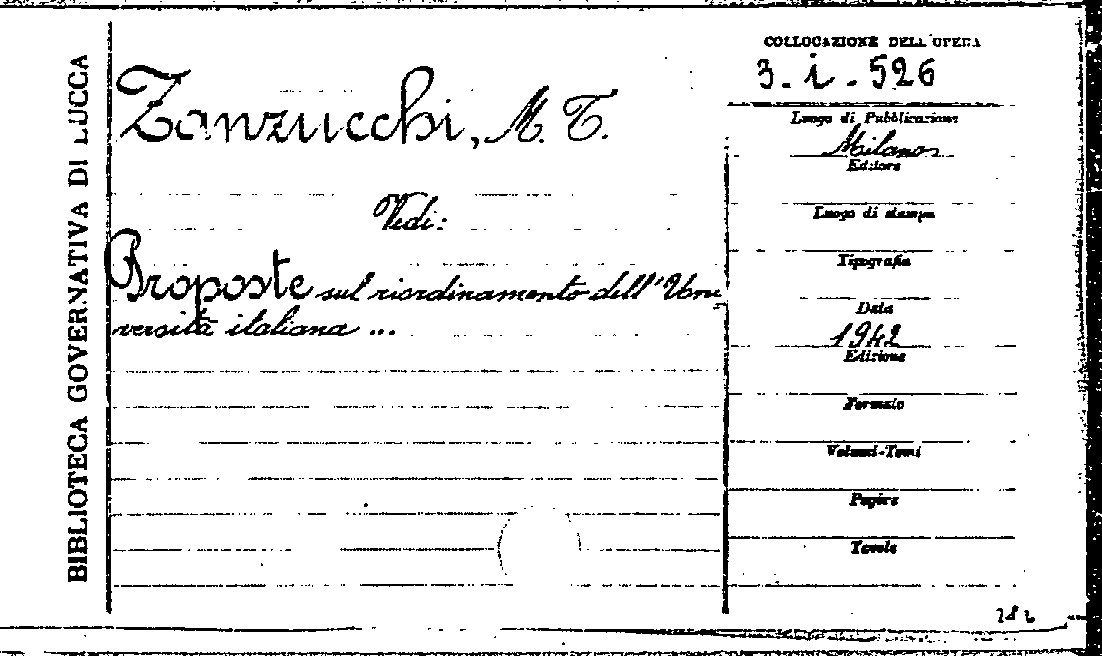 BIBLIOTECA GOVERNATIVA DI LUCCA
Zanzucchi, M. T.
Vedi:
Proposte sul riordinamento dell'Uni
versità italiana ...
COLLOCAZIONE DELL'OPERA
3. i. 526
Luogo di Pubblicazione
Milano
Editore
Luogo di stampa
Tipografia
Data
1942
Edizione
Formato
Volumi-Tomi
Pagine
Tavole